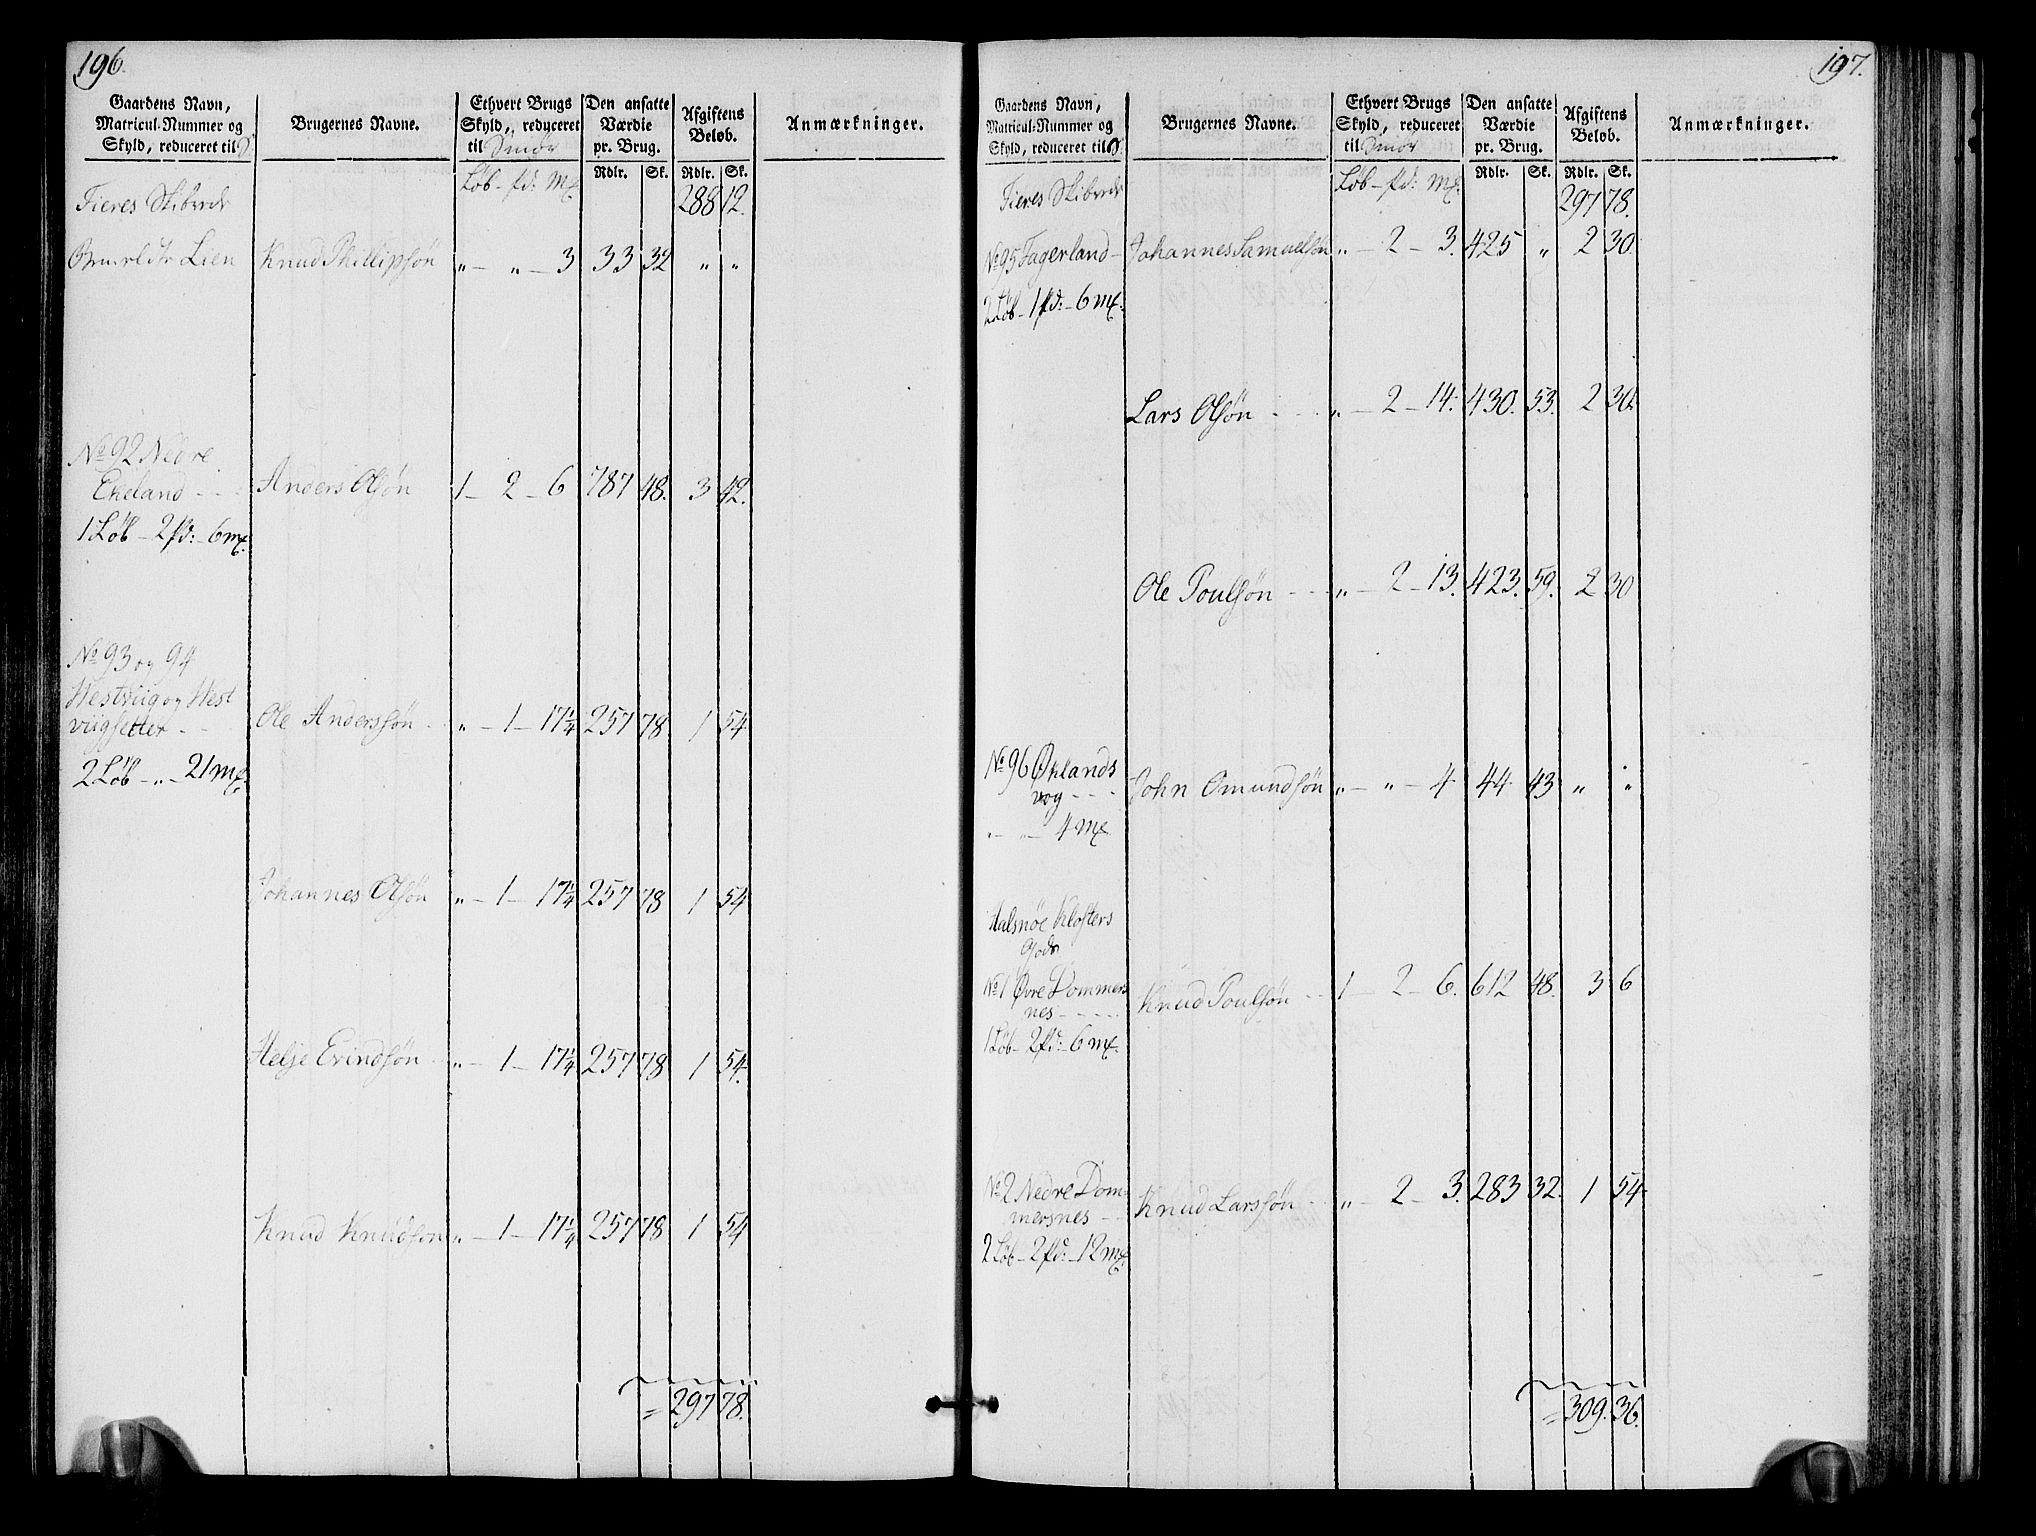 196.
Gaardens Navn, Matricul-Nummer og Skyld, reduceret til
Brugernes Navne.
Ethvert Brugs Skyld, reduceret til Smør
Den ansatte Værdie pr. Brug.
Afgiftens Beløb.
Anmærkninger.
Rdlr. Sk. Rdlr. Sk.
Løb - pd: Mk
Fieres Skibrede 288 12.
Lien Knud Phillipsøn " - " - 3 33 32 " "
No 92 Nedre
Ekeland - - - Anders Olsøn 1 - 2 - 6 787 48. 3 42.
1 Løb - 2 pd: - 6 mk.
No 93 og 94
Westviig og West
viigsetter - - Ole Anderssøn - " - 1 - 17¼ 257 78 1 54
2 Løb - " - 21 mk.
Johannes Olsøn " - 1 - 17¼ 257 78 1 54
Helje Erindsøn " - 1 - 17¼ 257 78 1 54.
Knud Knudsøn " - 1 - 17¼ 257 78 1 54
= 297 78.
197.
Gaardens Navn, Matricul-Nummer og Skyld, reduceret til
Brugernes Navne.
Ethvert Brugs Skyld, reduceret til Smør
Den ansatte Værdie pr. Brug.
Afgiftens Beløb.
Anmærkninger.
Rdlr. Sk. Rdlr. Sk.
Løb - pd: Mk.
Fieres Skibrede 297 78.
No 95 Fagerland - Johannes Samuelsøn " - 2 - 3. 425 " 2 30.
2 Løb - 1 pd: - 6 mk.
Lars Olsøn - - - " - 2 - 14. 430. 53. 2 30.
Ole Poulsøn - - - " - 2 - 13. 423. 59. 2 30
No 96 Øklands
vog - - - John Omundsøn " - " - 4 44 43 " "
" - " - 4 Mk
Halsnøe Klosters
Gods
No 1 Øvre Dommers
nes - - - - Knud Poulsøn - - 1 - 2 - 6. 612 48. 3 6
1 Løb - 2 pd: - 6 mk.
No 2 Nedre Dom-
mersnes - - Knud Larssøn - - " - 2 - 3. 283 32. 1 54.
2 Løb - 2 pd: - 12 mk.
= 309. 36.